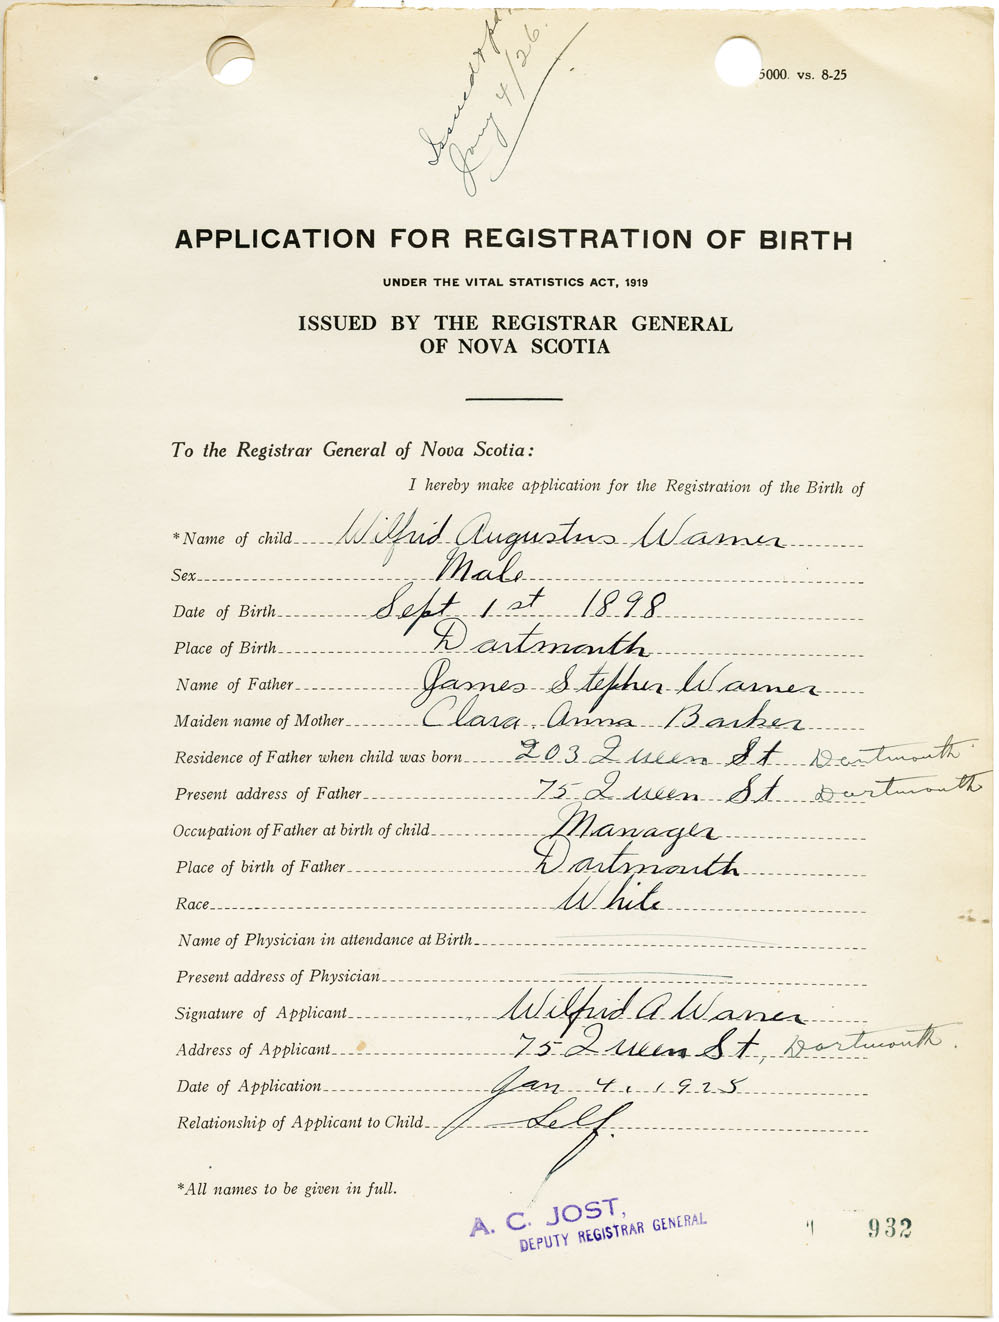 Issued & pd
Jany 4/26.
5000. vs. 8-25
APPLICATION FOR REGISTRATION OF BIRTH
UNDER THE VITAL STATISTICS ACT, 1919
ISSUED BY THE REGISTRAR GENERAL
OF NOVA SCOTIA
To the Registrar General of Nova Scotia:
I hereby make application for the Registration of the Birth of
*Name of child Wilfrid Augustus Warner
Sex Male
Date of Birth Sept 1st 1898
Place of Birth Dartmouth
Name of Father James Stephen Warner
Maiden name of Mother Clara Anna Barker
Residence of Father when child was born 203 Queen St Dartmouth
Present address of Father 75 Queen St Dartmouth
Occupation of Father at birth of child Manager
Place of birth of Father Dartmouth
Race White
Name of Physician in attendance at Birth
Present address of Physician
Signature of Applicant Wilfrid A Warner
Address of Applicant 75 Queen St, Dartmouth.
Date of Application Jan 4, 1925
Relationship of Applicant to Child Self.
*All names to be given in full.
A. C. JOST,
DEPUTY REGISTRAR GENERAL
932